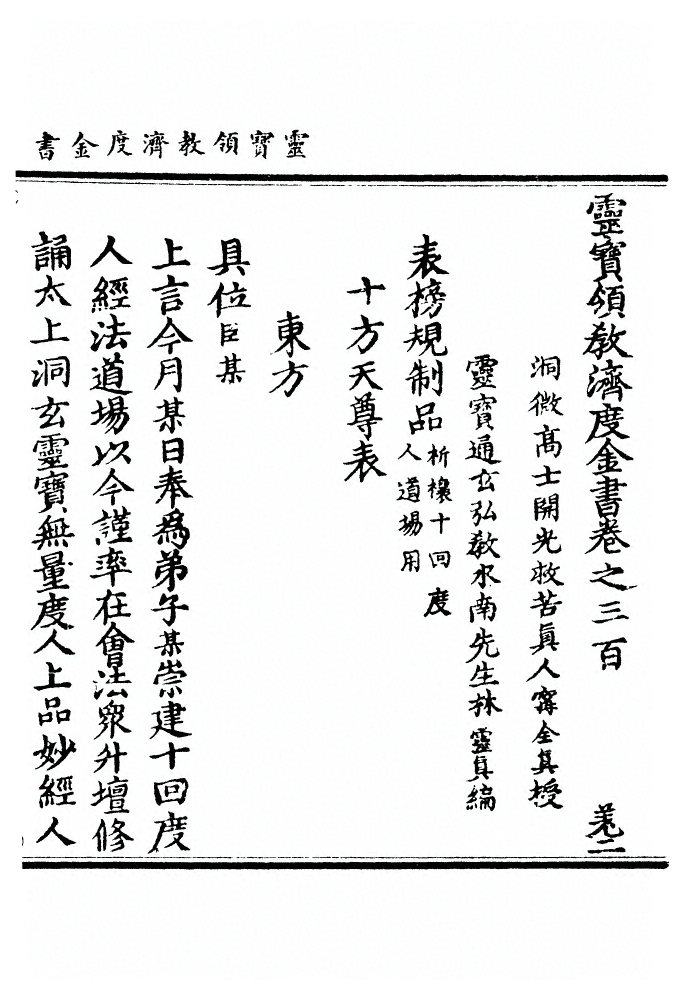 靈寶領教濟度金書
靈寶領教濟度金書卷之三百
洞微高士開光救苦眞人寗全眞授
靈寶通玄弘教水南先生林靈眞編
表榜規制品祈禳十回度
人道場用
十方天尊表
東方
具位臣某
上言今月某日奉爲弟子某崇建十回度
人經法道場以今謹率在會法衆升壇修
誦太上洞玄靈寶無量度人上品妙經人